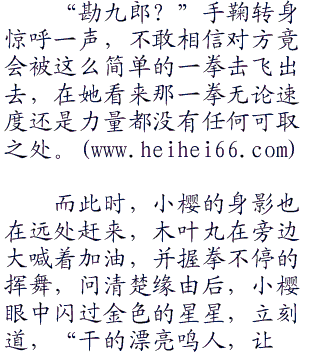 “勘九郎？”手鞠转身
惊呼一声，不敢相信对方竟
会被这么简单的一拳击飞出
去，在她看来那一拳无论速
度还是力量都没有任何可取
之处。(www.heihei66.com)
而此时，小樱的身影也
在远处赶来，木叶丸在旁边
大喊着加油，并握拳不停的
挥舞，问清楚缘由后，小樱
眼中闪过金色的星星，立刻
道，“干的漂亮鸣人，让